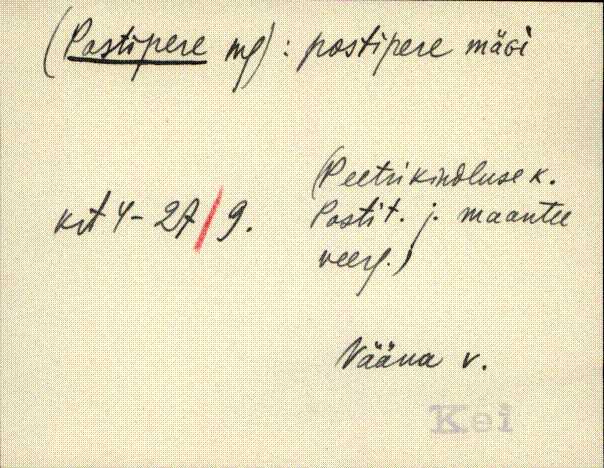 (Postipere mg) : postipere mägi
(Peetri kindluse k.
krt 4 - 27/9. Posti t. j. maantee
veerg.)
Vääna v.
Kei